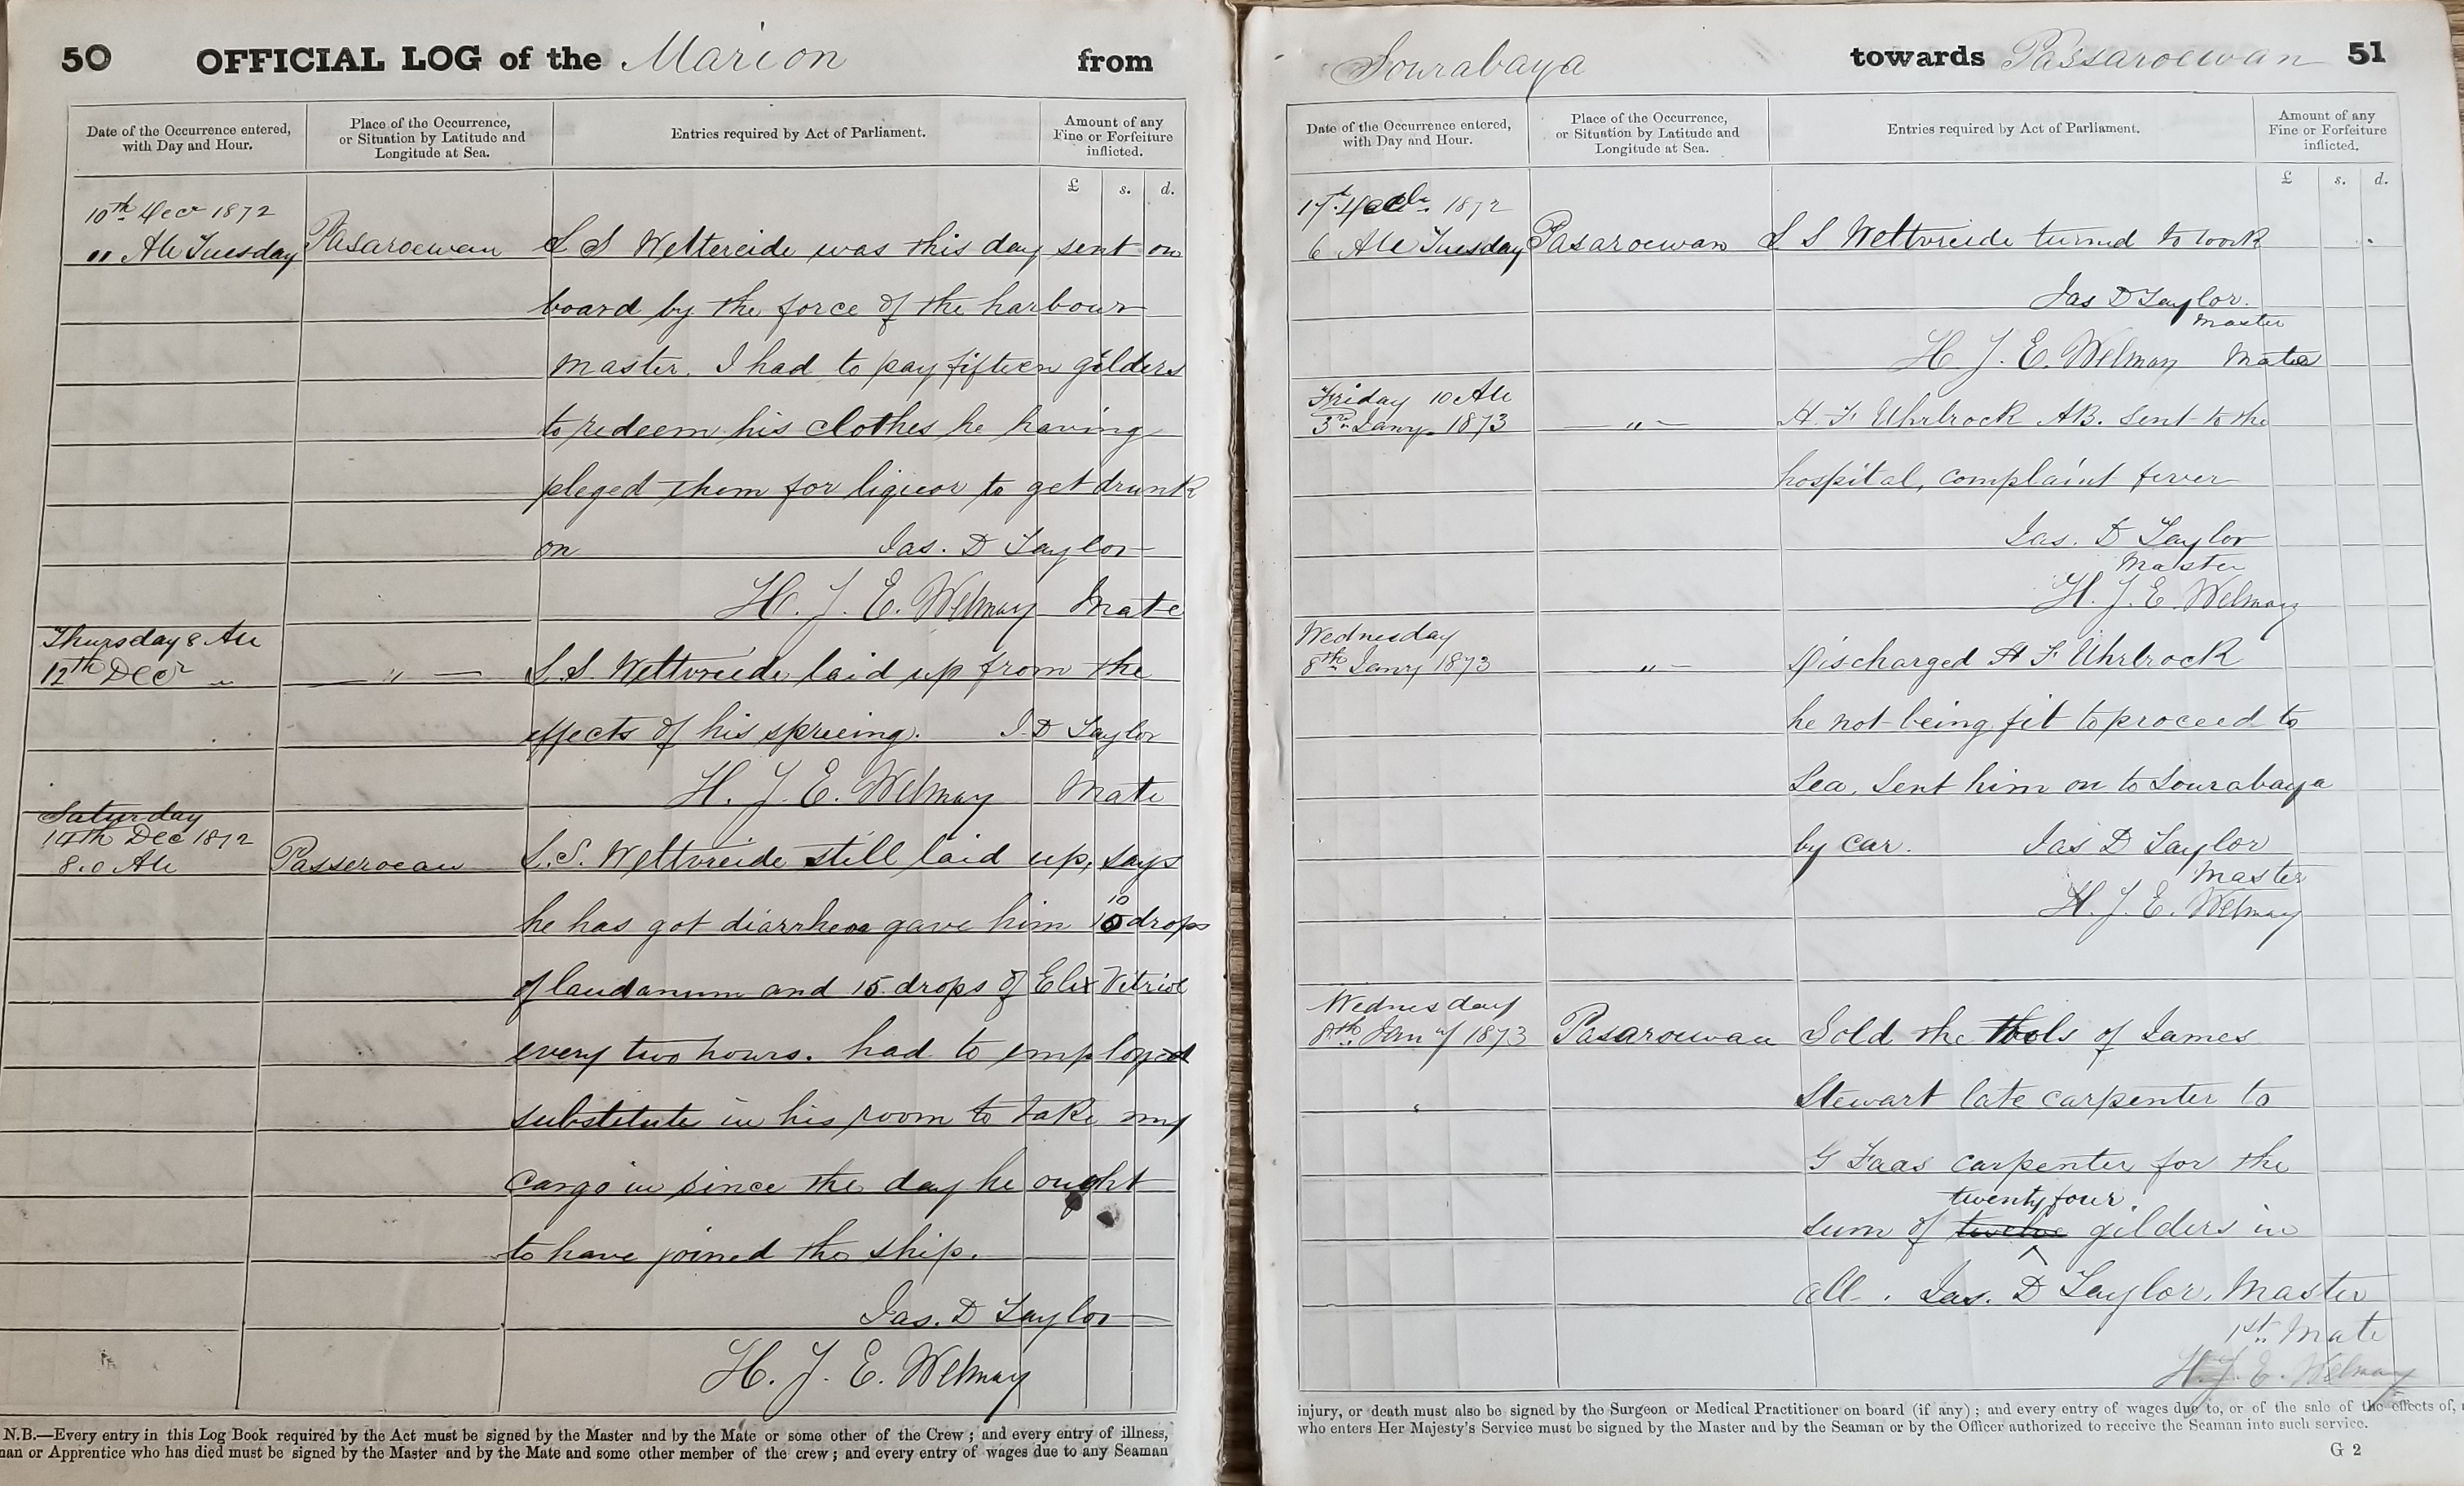 50 OFFICIAL LOG of the Marion from
Date of the Occurrence entered, with Day and Hour.
Place of the Occurrence, or Situation by Latitude and Longitude at Sea.
Entries required by Act of Parliament.
Amount of any Fine or Forfeiture inflicted.
£ s. d.
10th Decr 1872
" AM Tuesday Pasaroewan S S Weltvreide was this day sent on
board by the force of the harbour
master. I had to pay fifteen gilders
to redeem his clothes he having
pleged them for liquor to get drunk
on Jas. D Taylor
H. J. E. Welmay Mate
Thursday 8 AM
12th Decr " — " — S. S. Weltvreide laid up from the
effects of his spreeing. J. D Taylor
H. J. E. Welmay Mate
Saturday
14th Dec 1872
8.0 AM Passeroean S. S. Weltvreide still laid up, says
10
he has got diarrhea gave him drops
of laudanum and 15 drops of Elix Vitriol
every two hours. had to employed
substitute in his room to take my
cargo in since the day he ought
to have joined the ship.
Jas. D Taylor
H. J. E. Welmay
N.B.—Every entry in this Log Book required by the Act must be signed by the Master and by the Mate or some other of the Crew; and every entry of illness,
man or Apprentice who has died must be signed by the Master and by the Mate and some other member of the crew; and every entry of wages due to any Seaman
Sourabaya towards Passaroewan 51
Date of the Occurrence entered, with Day and Hour.
Place of the Occurrence, or Situation by Latitude and Longitude at Sea.
Entries required by Act of Parliament.
Amount of any Fine or Forfeiture inflicted.
£ s. d.
17th 1872
6 AM Tuesday Pasaroewan S S Weltvreide turned to work
Jas D Taylor.
master
H. J. E. Welmay Mate
Friday 10 AM
3rd Jany. 1873 — " — H. F Uhrbrock AB. sent to the
hospital, complaint fever
Jas. D Taylor
Master
H. J. E. Welmay
Wednesday
8th Jany 1873 " — Discharged H F Uhrbrock
he not being fit to proceed to
Sea, Sent him on to Sourabaya
by car. Jas D Taylor
Master
H. J. E. Welmay
Wednesday
8th. Jany 1873 Pasarouwan Sold the tools of James
Stewart late carpenter to
G Faas carpenter for the
twenty four.
sum of twelve gilders in
all. Jas. D Taylor, Master
1st. Mate
H. J. E. Welmay
injury, or death must also be signed by the Surgeon or Medical Practitioner on board (if any); and every entry of wages due to, or of the sale of the effects of,
who enters Her Majesty's Service must be signed by the Master and by the Seaman or by the Officer authorized to receive the Seaman into such service.
G 2